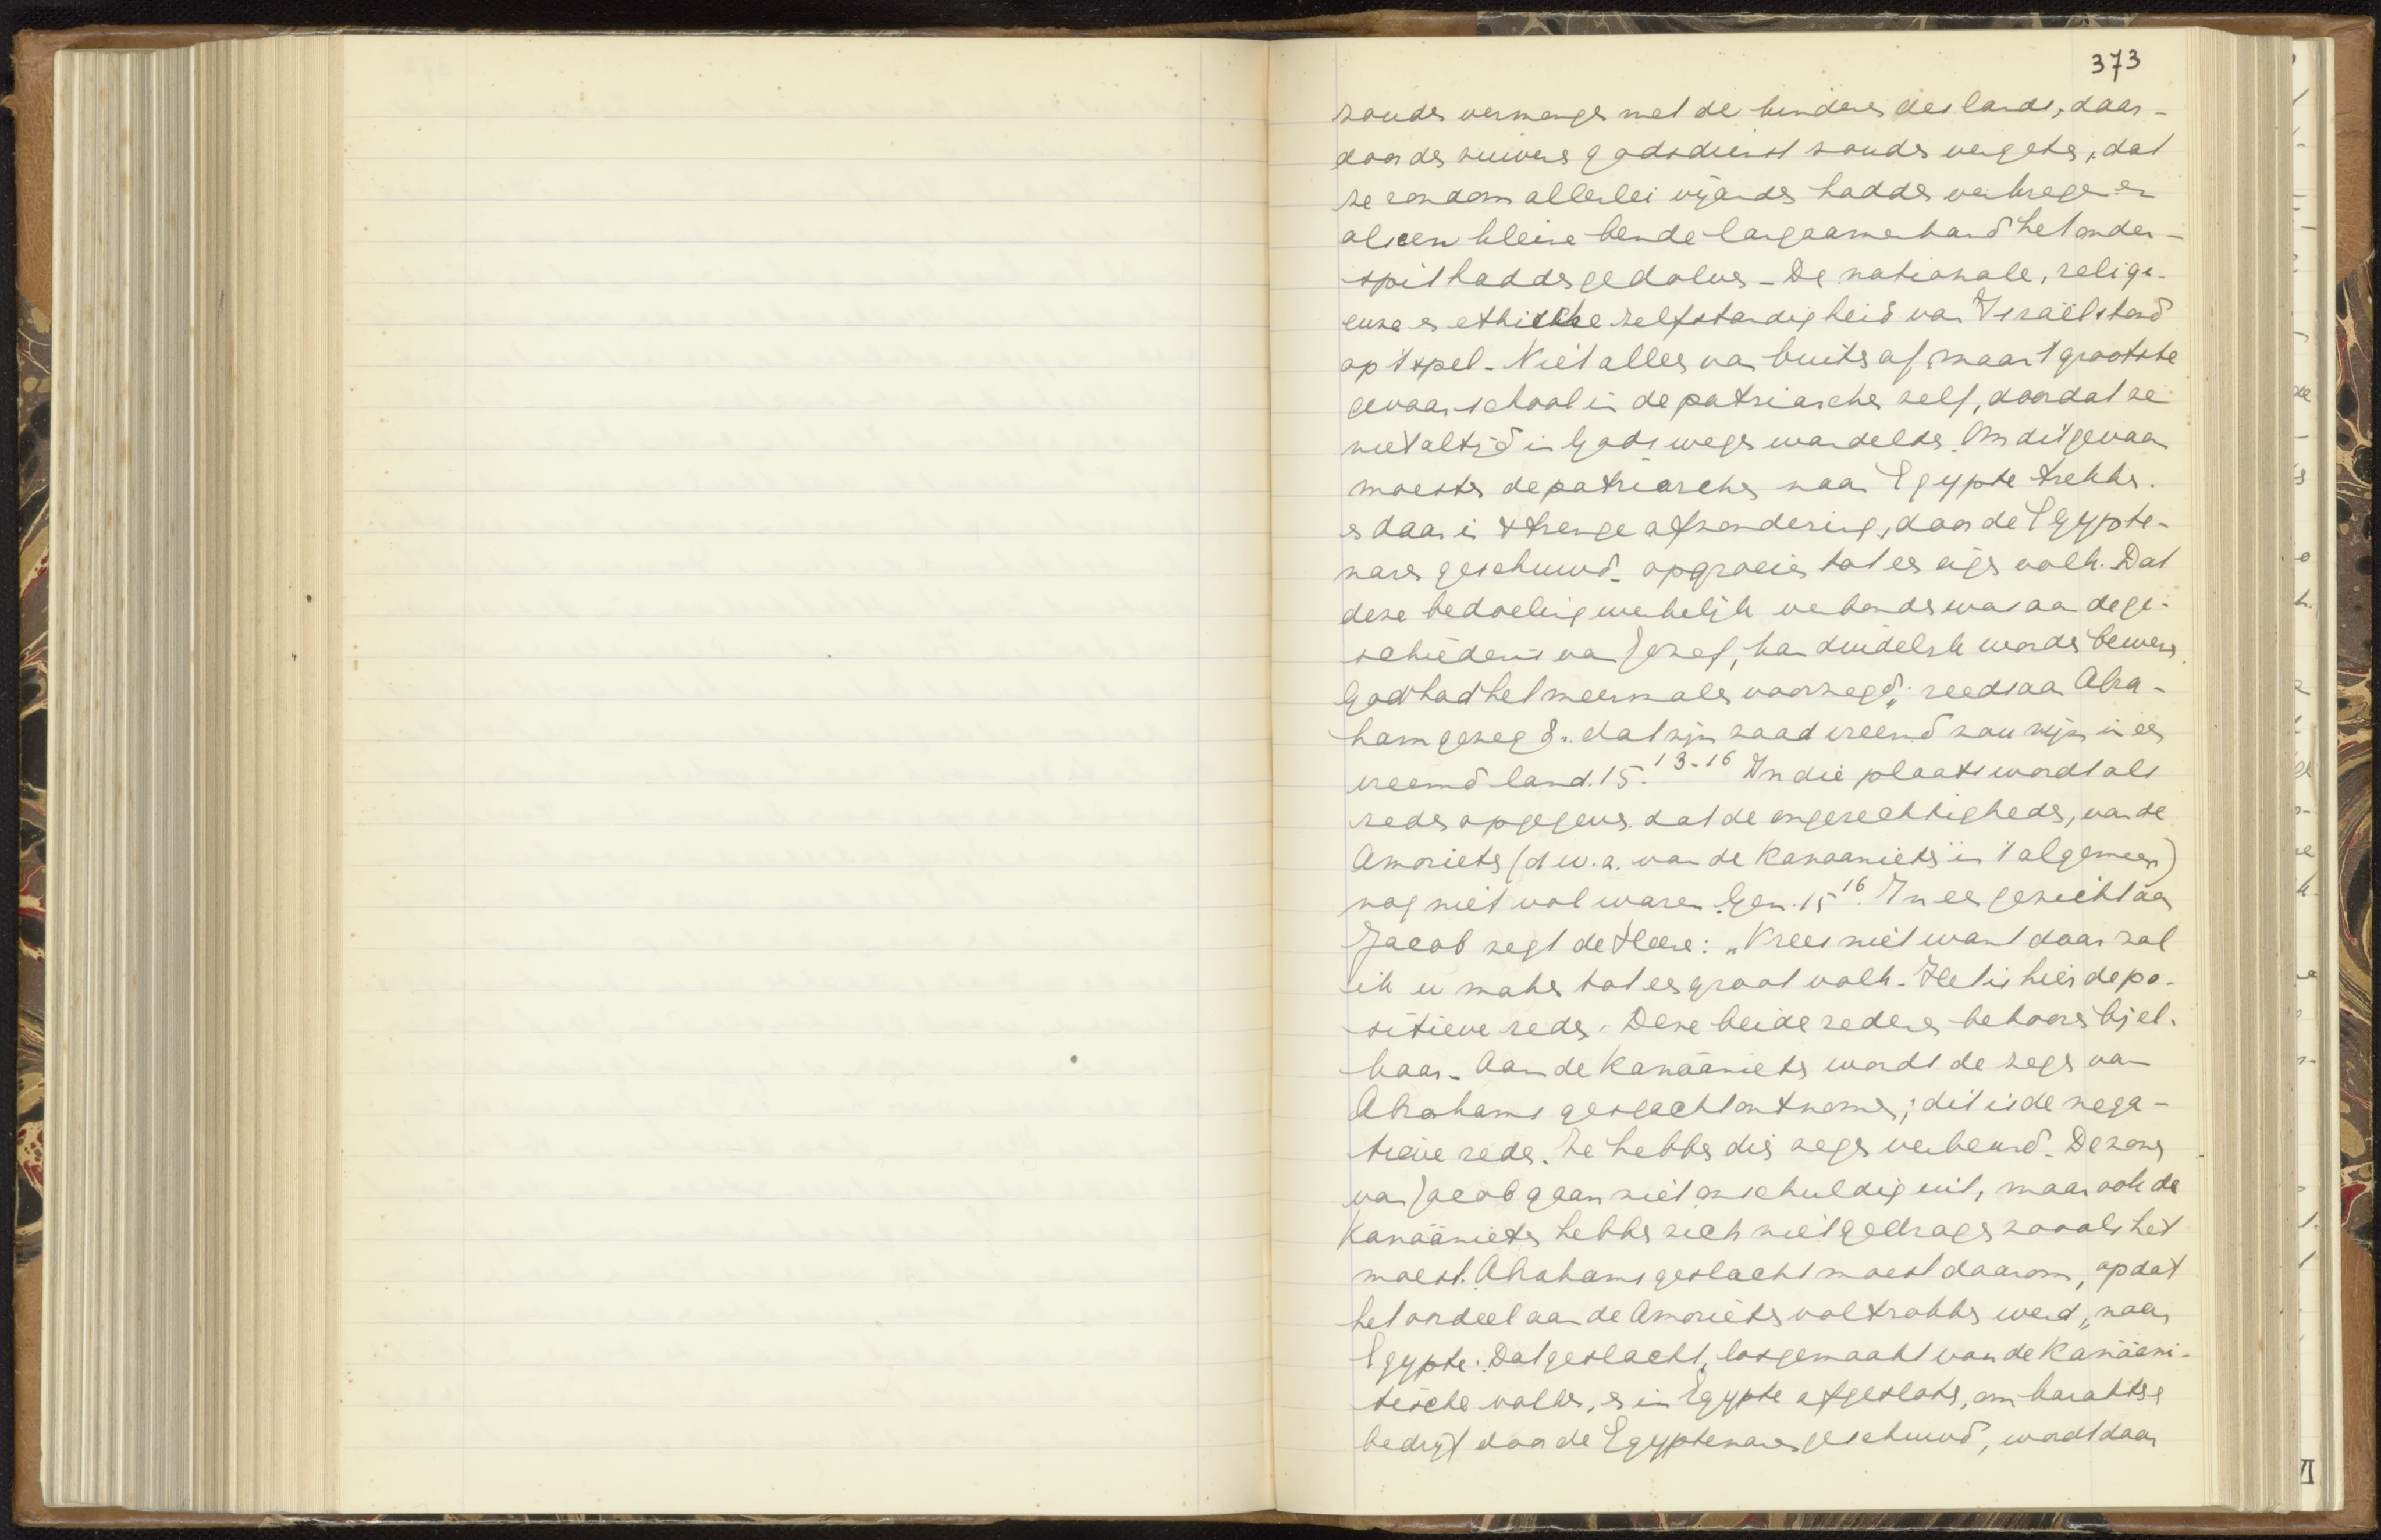 373
zouden vermengen met de kinderen des lands, daar-
door den zuivere godsdienst zouden vergeten, dat
ze rondom allerlei vijanden hadden verkregen en
als een kleine bende langzamerhand het onder-
spit hadden gedolven - De nationale, religi-
euze en ethische zelfstandigheid van Israël stond
op 't spel - Niet alles van buiten af, maar 't grootste
gevaar school in de patriarchen zelf, doordat ze
niet altijd in Gods wegen wandelden. Om dit gevaar
moesten de patriarchen naar Egypte trekken.
en daar in strenge afzondering, door de Egypte-
naren geschuwd - opgroeien tot een eigen volk. Dat
deze bedoeling werkelijk verbonden was aan de ge-
schiedenis van Jozef, kan duidelijk worden bewezen.
God had het meermalen voorzegd, reeds aan Abra-
ham gezegd: dat zijn zaad vreemd zou zijn in een
vreemd land. 15. 13-16 In die plaats wordt als
reden opgegeven dat de ongerechtigheden, van de
Amorieten (d.w.z. van de Kanaanieten in 't algemeen)
nog niet vol waren. Gen. 15 16. In een gezicht aan
Jacob zegt de Heere: „Vrees niet want daar zal
ik u maken tot een groot volk - Het is hier de po-
sitieve reden. Deze beide redenen behooren bij el-
kaar - Aan de Kanäanieten wordt de zegen van
Abrahams geslacht ontnomen; dit is de nega-
tieve reden. Ze hebben dien zegen verbeurd - De zonen
van Jacob gaan niet onschuldig uit, maar ook de
Kanäanieten hebben zich niet gedragen zooals het
moest. Abrahams geslacht moest daarom, opdat
het oordeel aan de Amorieten voltrokken werd, naar
Egypte. Dat geslacht, losgemaakt van de Kanäani-
tische volken, en in Egypte afgesloten, om haar
bedrijf door de Egyptenaren geschuwd, wordt daar
VI